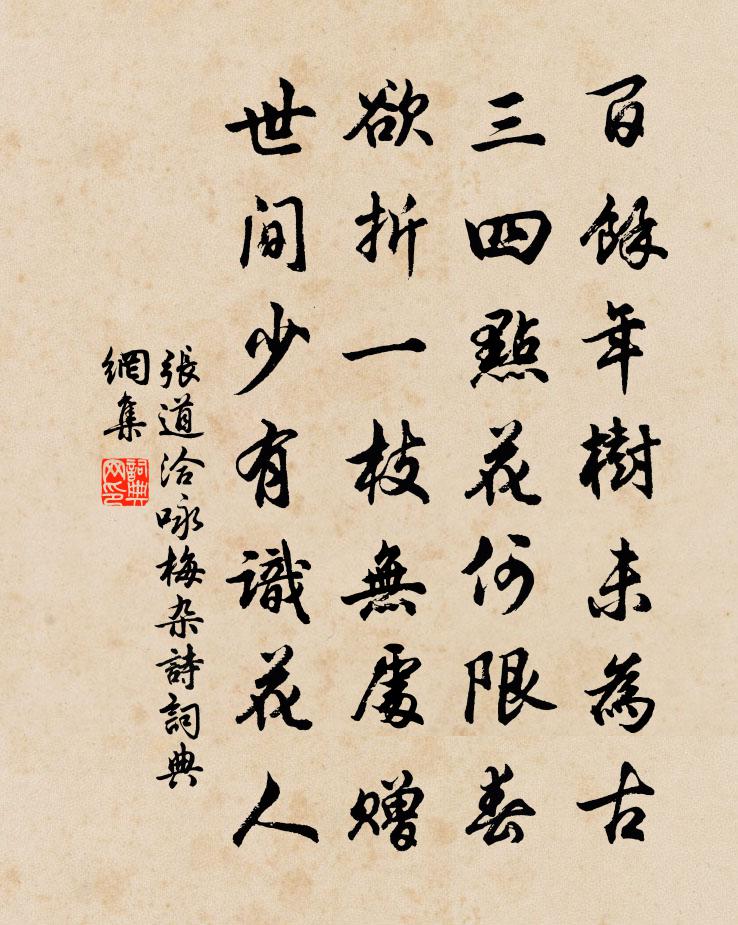 百餘年樹未為古
三四點花何限春
欲折一枝無處贈
世間少有識花人
張道洽咏梅杂詩詞典
網集
詞典
网印